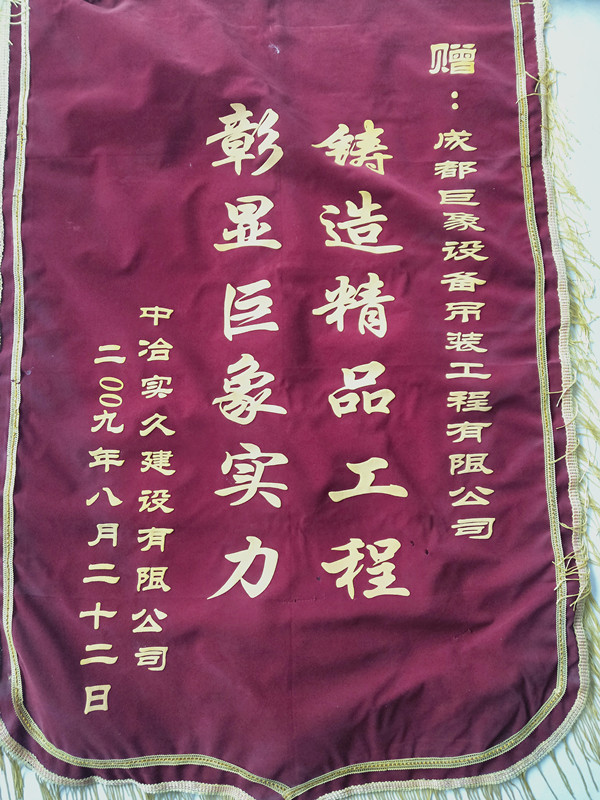 赠：成都巨象设备吊装工程有限公司
铸造精品工程
彰显巨象实力
中冶实久建设有限公司
二00九年八月二十二日